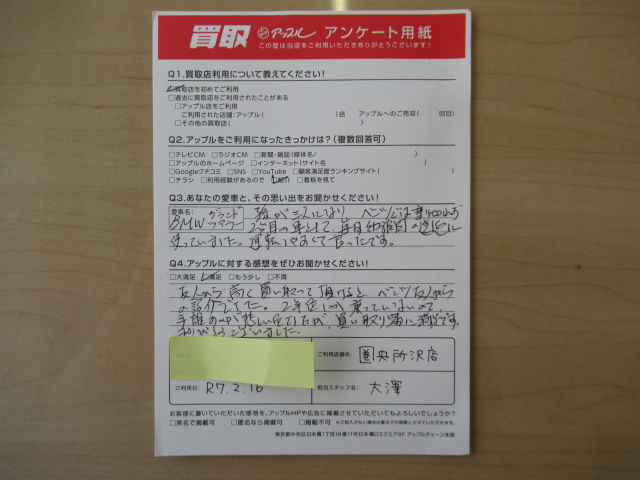 買取 アップル アンケート用紙
この度は当店をご利用いただきありがとうございます!
Q1.買取店利用について教えてください!
□買取店を初めてご利用
□過去に買取店をご利用されたことがある
□アップル店をご利用
ご利用された店舗:アップル( )店 アップルへのご売却( 回目)
□その他の買取店( )
Q2.アップルをご利用になったきっかけは?(複数回答可)
□テレビCM □ラジオCM □新聞・雑誌(媒体名/ )
□アップルのホームページ □インターネット(サイト名 )
□Googleクチコミ □SNS □YouTube □顧客満足度ランキングサイト( )
□チラシ □利用経験があるので □紹介 □看板を見て
Q3.あなたの愛車と、その思い出をお聞かせください!
愛車名: グランド
BMW ツアラー
2台目の車として、毎日幼稚園の送迎に
使っていました。運転しやすくて
Q4.アップルに対する感想をぜひお聞かせください!
□大満足 □満足 □もう少し □不満
友人から高く買い取って頂けると
2年近く 乗っていないので
買い取り額に満足です。
ありがとうございました。
ご利用店舗名: 圏央所沢店
ご利用日: R7.2.16 担当スタッフ名: 大澤
お客様に書いていただいた感想を、アップルHPや広告に掲載させていただいてもよろしいでしょうか?
□実名で掲載可 □匿名なら掲載可 □掲載不可 ※ご記入がない場合は匿名での掲載とさせていただきます。
東京都中央区日本橋1丁目16番11号日本橋Dスクエア8F アップルチェーン本部